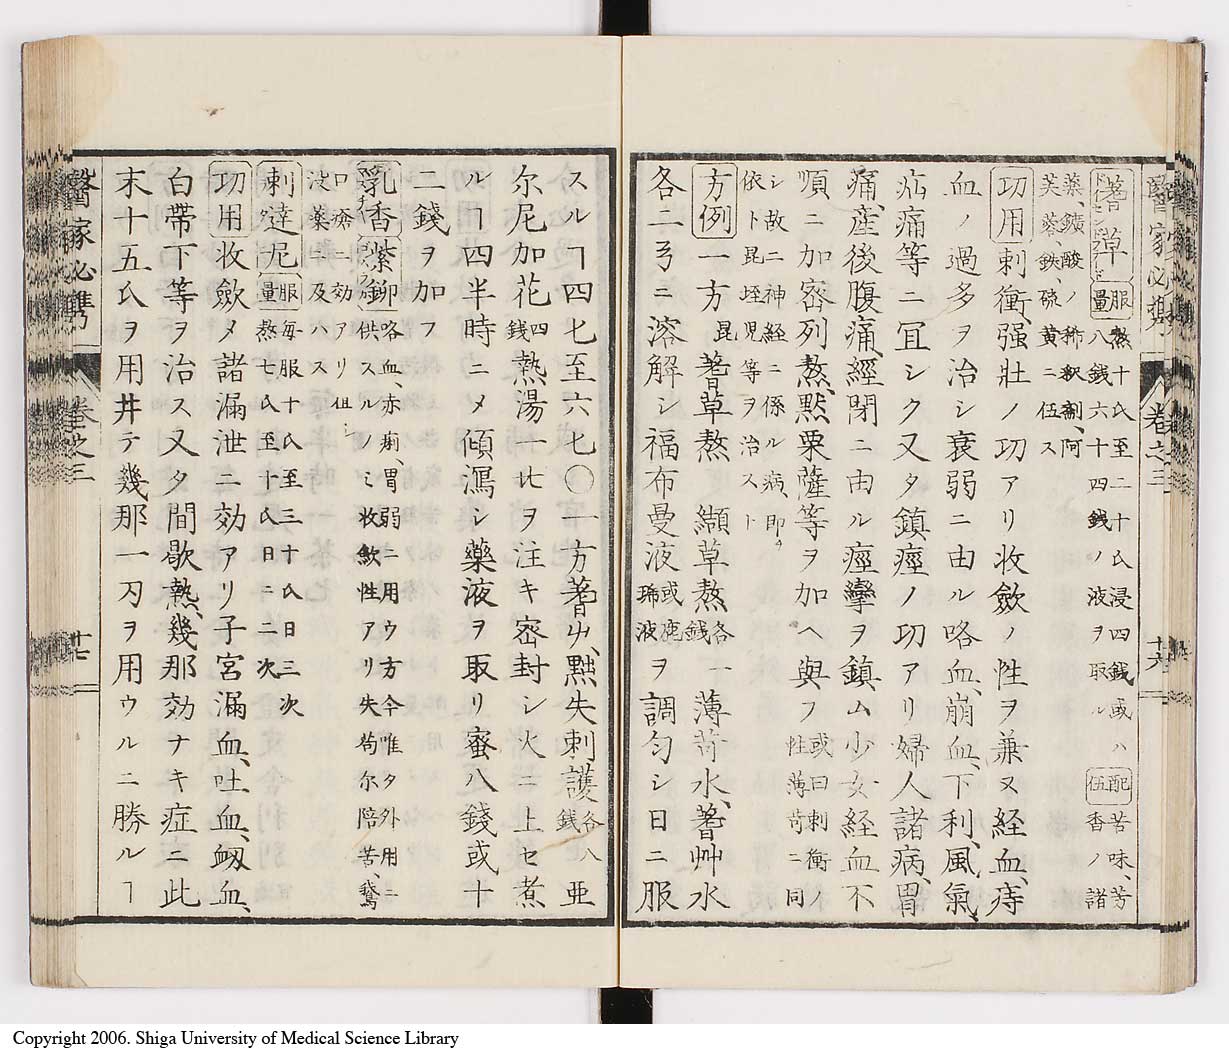 醫家必携 卷之三 十六
蓍草 服量 熬十氏至二十氏浸四銭或ハ八銭六十四銭ノ液ヲ取ル 配伍 苦味、芳香ノ諸
薬、鑛酸ノ稀釈劑、阿芙蓉、鉄、硫黄ニ伍ス
功用 刺衝、强壯ノ功アリ收斂ノ性ヲ兼ヌ経血、痔
血ノ過多ヲ治シ衰弱ニ由ル咯血、崩血、下利、風氣、
疝痛等ニ冝シク又タ鎮痙ノ功アリ婦人諸病、胃
痛、産後腹痛、經閉ニ由ル痙攣ヲ鎮ム少女経血不
順ニ加密列熬、黙栗薩等ヲ加ヘ與フ 或曰刺衝ノ性薄荷ニ同
シ故ニ神経ニ係ル病、即チ依ト昆垤児等ヲ治スト
方例 一方 昆 蓍草熬 纈草熬 各一銭 薄荷水、蓍艸水
各二弓ニ溶解シ福布曼液 或鹿琋液 ヲ調匀シ日ニ服
スルヿ四七至六七〇一方蓍艸、黙失刺護 各八銭 亜
尓尼加花 四銭 熱湯一比ヲ注キ密封シ火ニ上セ煮
ルヿ四半時ニメ傾瀉シ藥液ヲ取リ蜜八錢或十
二錢ヲ加フ
乳香 紫鉚 咯血、赤痢、胃弱ニ用ウ方今唯タ外用ニ供スルノミ收斂性アリ失苟尓陪苦、鵞
口瘡ニ効アリ但シ没薬ニ及ハス
刺達尼 服量 毎服十氏至三十氏日三次熬七氏至十氏日ニ二次
功用 收斂タメ諸漏泄ニ効アリ子宮漏血、吐血、衂血、
白帯下等ヲ治ス又タ間歇熱、幾那効ナキ症ニ此
末十五氏ヲ用井テ幾那一刃ヲ用ウルニ勝ルヿ
醫家必携 卷之三 十七
Copyright 2006. Shiga University of Medical Science Library